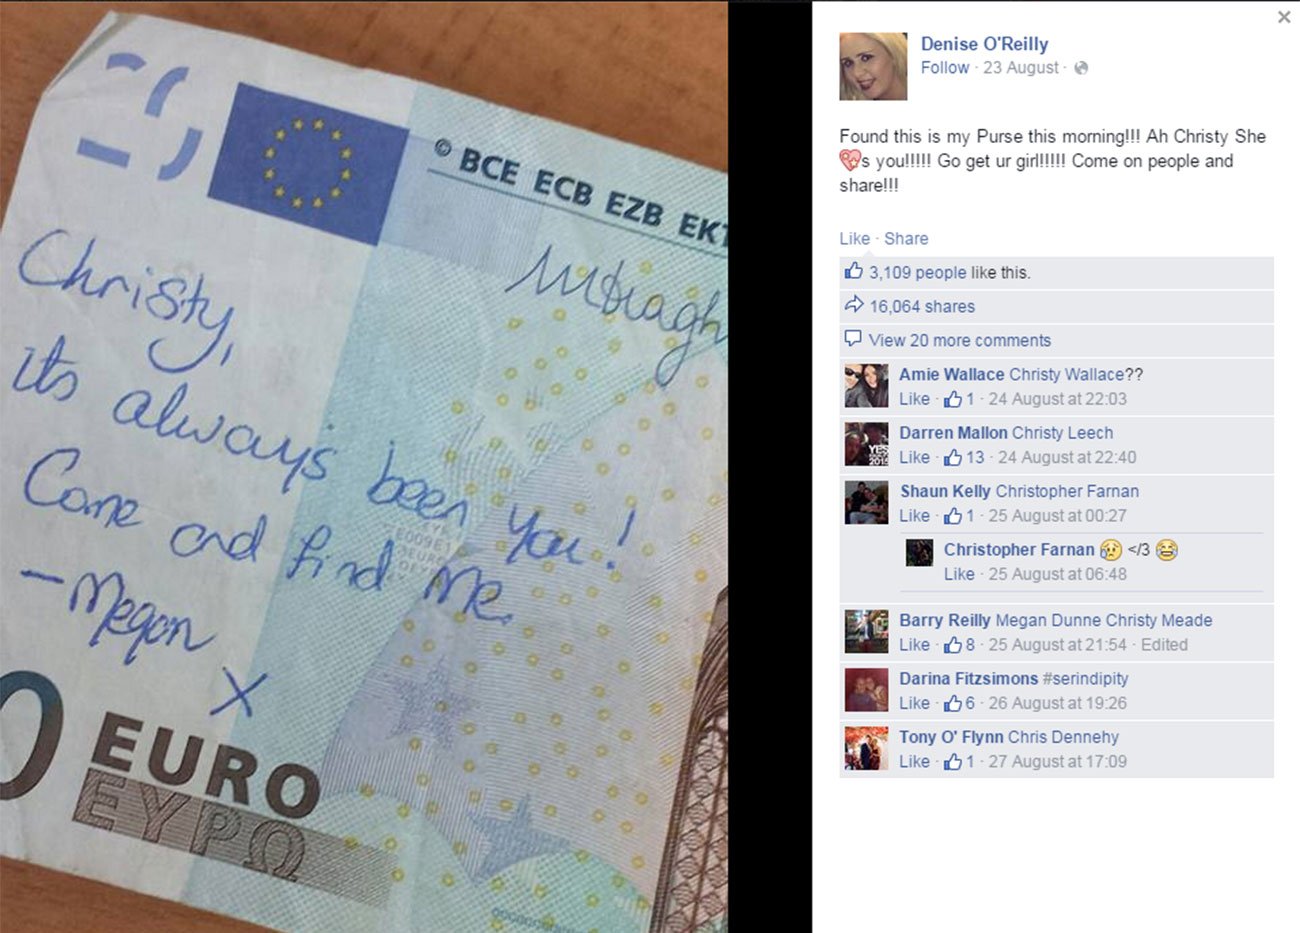 © BCE ECB EZB EKT
Christy,
its always been you!
Come and find me.
-Megan
X
0 EURO
ΕΥΡΩ
×
Denise O'Reilly
Follow · 23 August ·
Found this is my Purse this morning!!! Ah Christy She
s you!!!!! Go get ur girl!!!!! Come on people and
share!!!
Like · Share
3,109 people like this.
16,064 shares
View 20 more comments
Amie Wallace Christy Wallace??
Like · 1 · 24 August at 22:03
Darren Mallon Christy Leech
Like · 13 · 24 August at 22:40
Shaun Kelly Christopher Farnan
Like · 1 · 25 August at 00:27
Christopher Farnan 😥 </3 😂
Like · 25 August at 06:48
Barry Reilly Megan Dunne Christy Meade
Like · 8 · 25 August at 21:54 · Edited
Darina Fitzsimons #serindipity
Like · 6 · 26 August at 19:26
Tony O' Flynn Chris Dennehy
Like · 1 · 27 August at 17:09